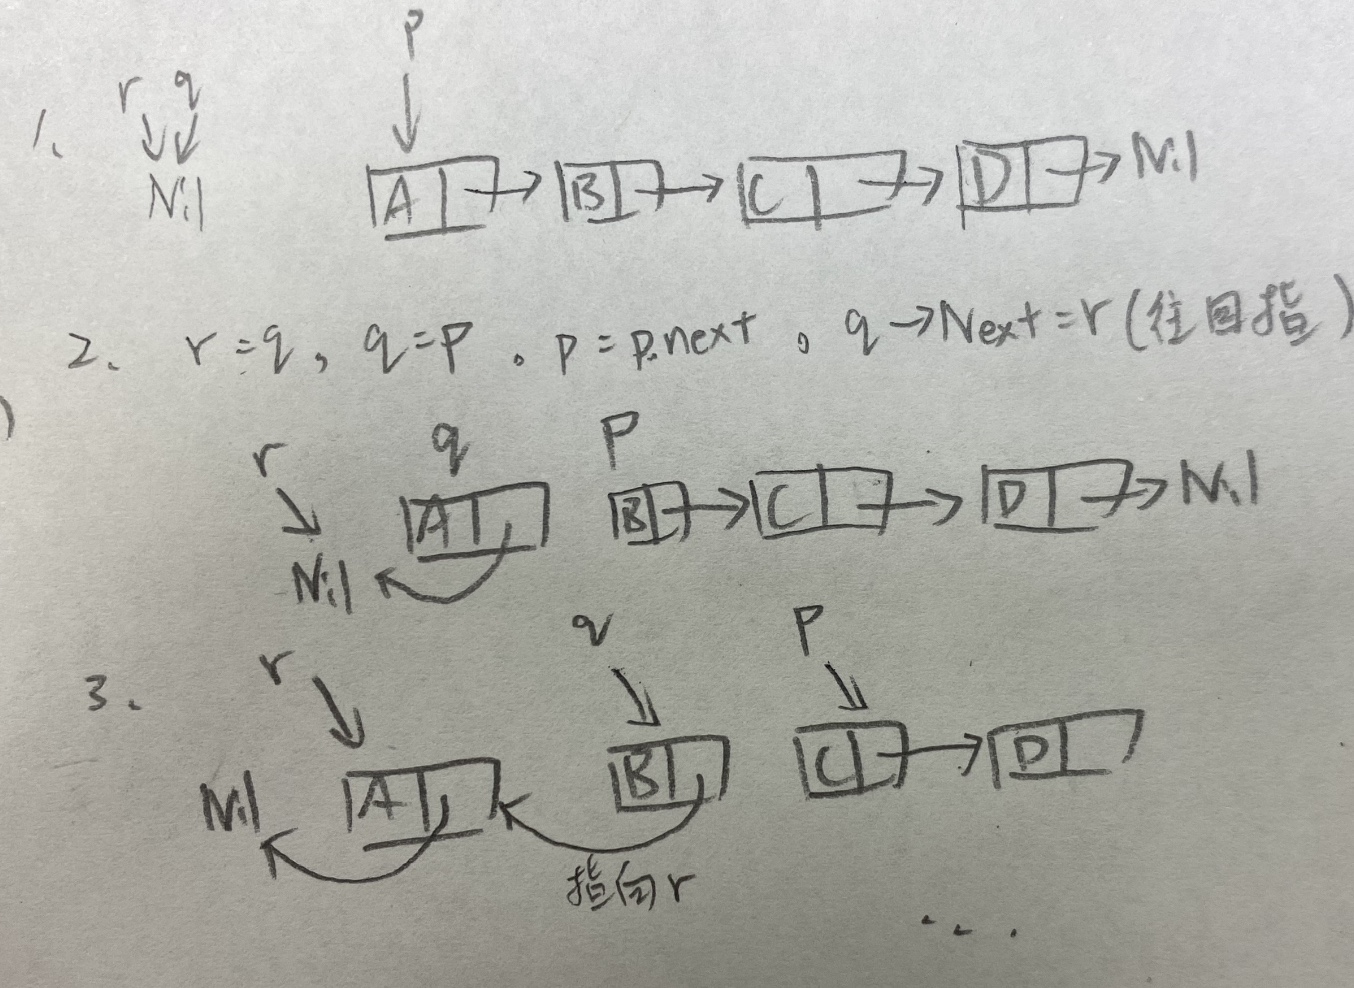 p
r q
1. Nil A B C D Nil
2. r=q, q=p 。p=p.next 。q→Next=r(往回指)
r q p
A B C D Nil
Nil
q p
3. r
Nil A B C D
指向r
...